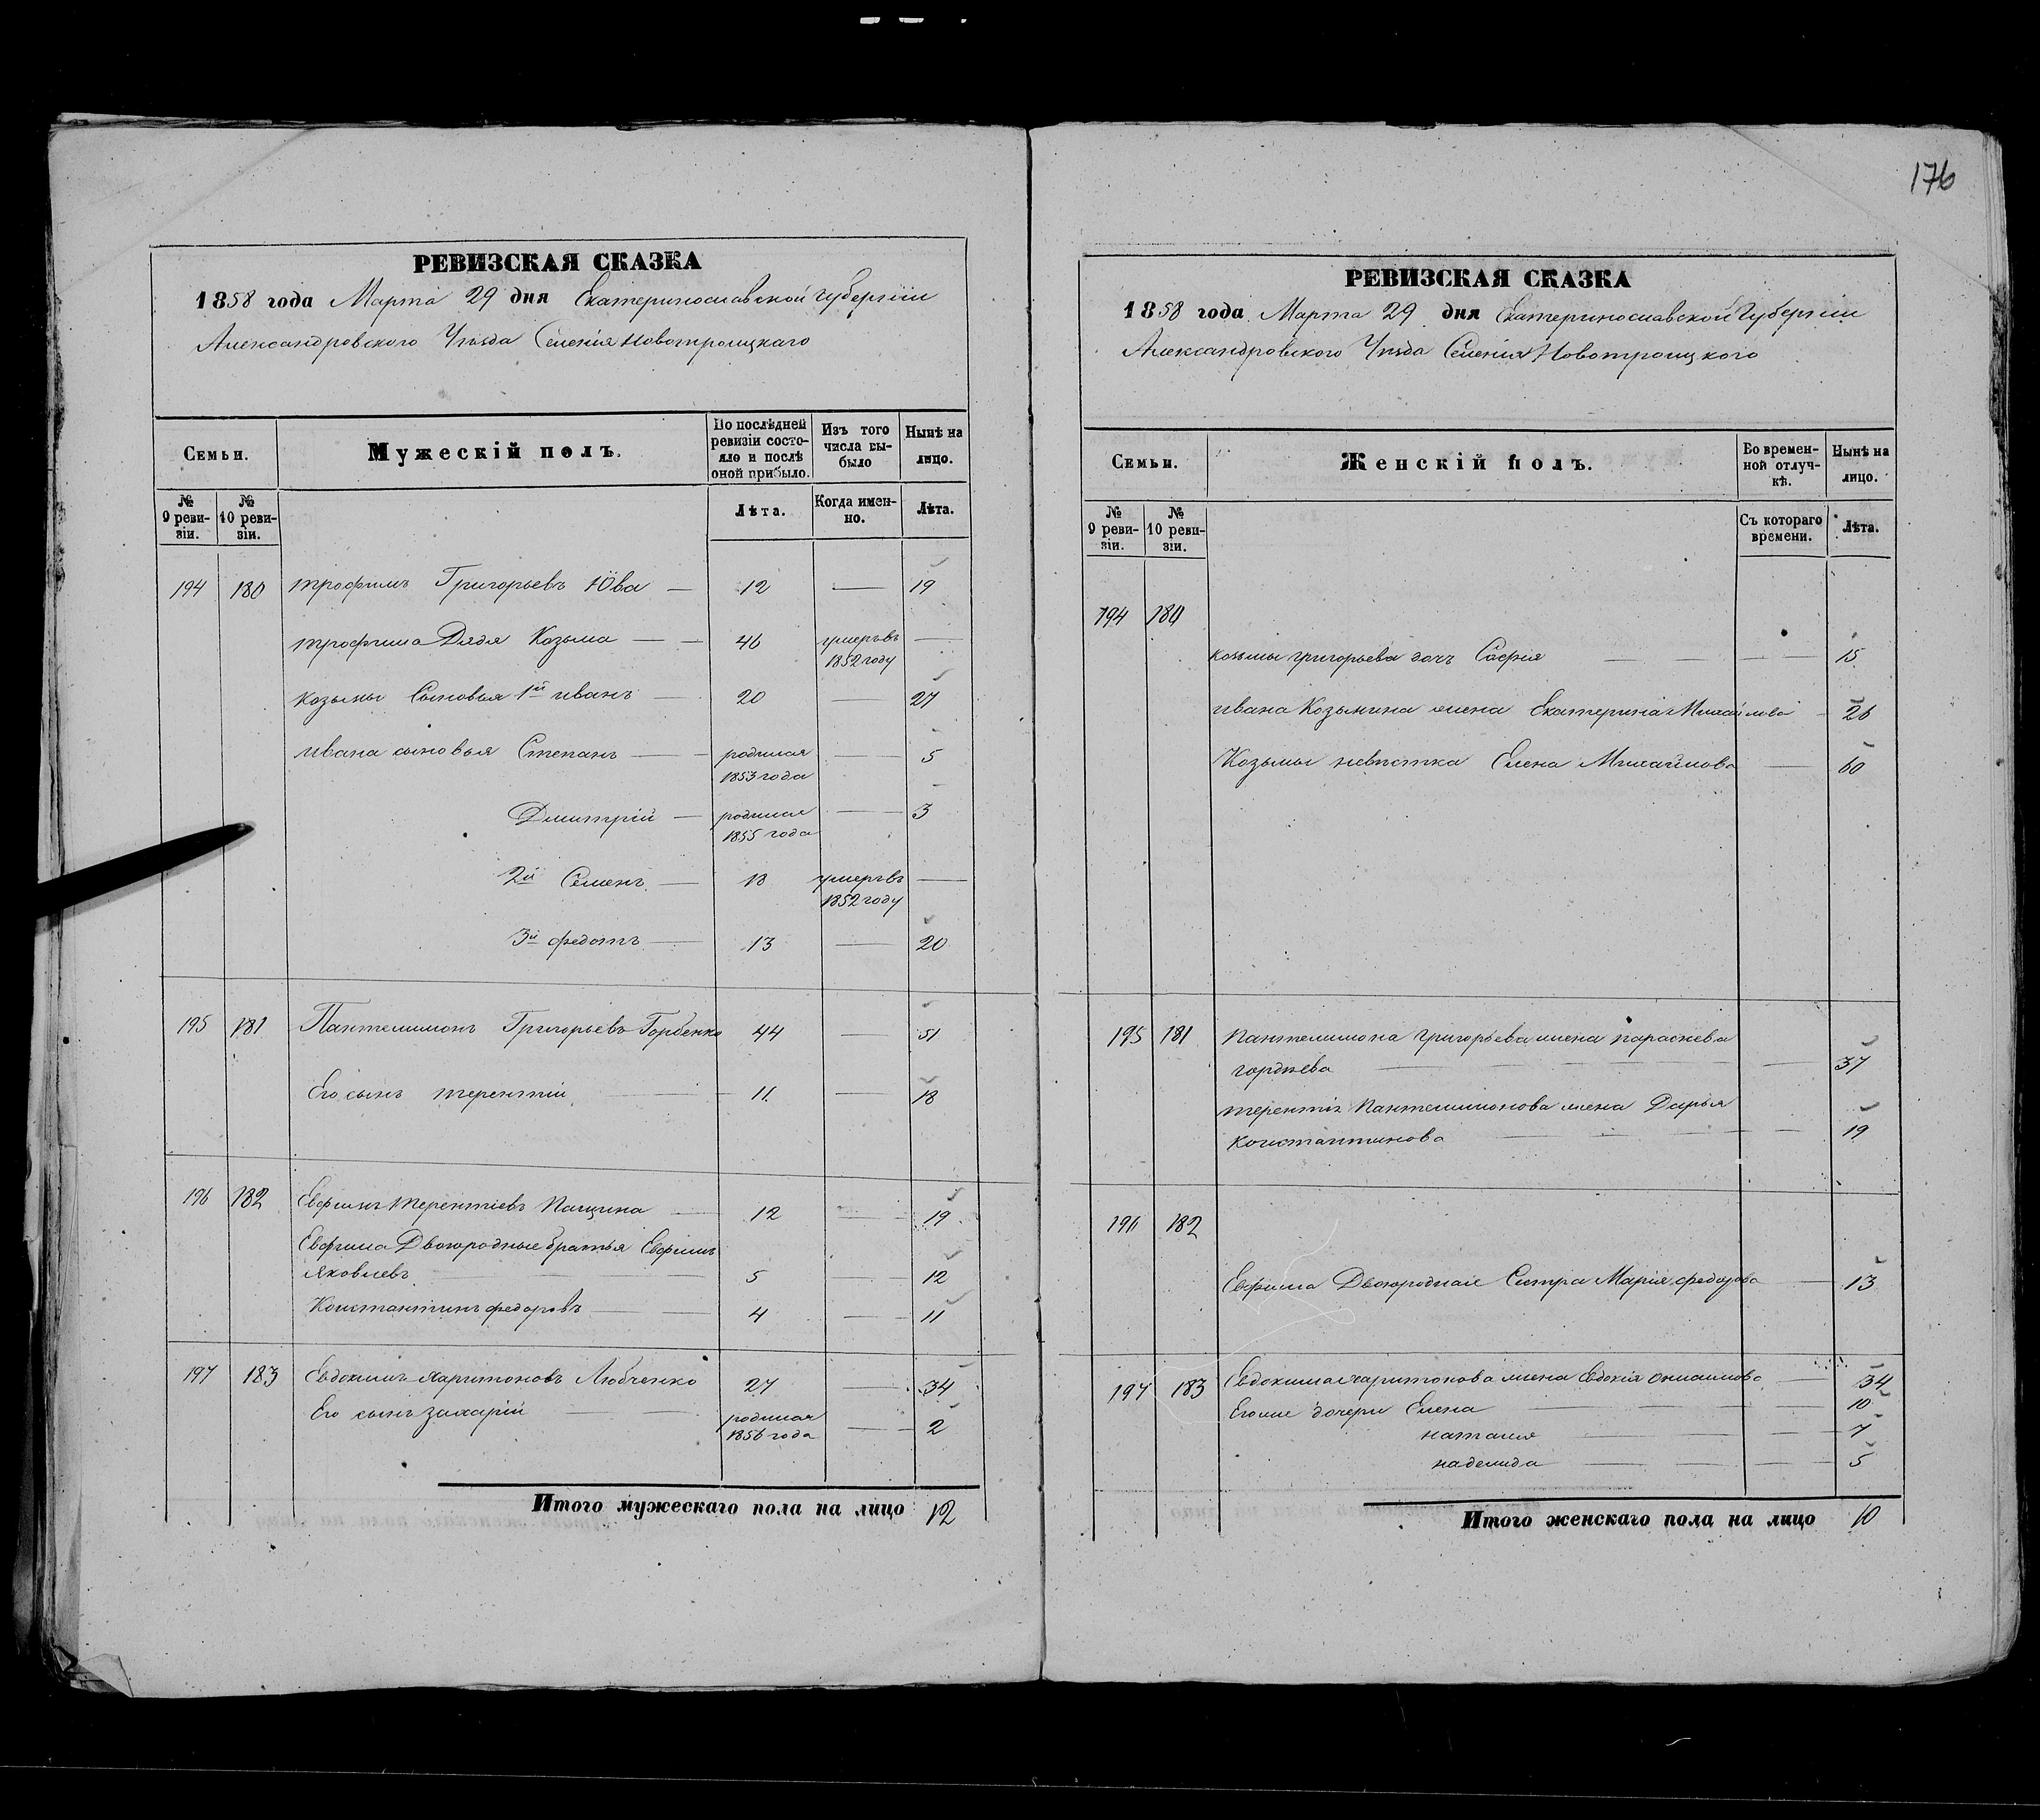 176
РЕВИЗСКАЯ СКАЗКА
1858 года Марта 29 дня Екатеринославской Губерніи
Александровского Уѣзда Селенія Новотроицкаго
Семьи.
Мужескій полъ.
По послѣдней ревизіи состояло и послѣ оной прибыло.
Изъ того числа выбыло
Нынѣ на лицо.
№ 9 ревизіи.
№ 10 ревизіи.
Лѣта.
Когда именно.
Лѣта.
194 180 трофимъ Григорьевъ Юва — 12 — 19
трофима Дядя Козьма — — 46 умеръ въ 1852 году —
козьмы Сыновья 1й иванъ — 20 — 27
ивана сыновья Степанъ — родился 1853 года — 5
Дмитрій — родился 1855 года — 3
2й Семенъ — 18 умеръ въ 1852 году —
3й федотъ — 13 — 20
195 181 Пантелимонъ Григорьевъ Горбенко 44 — 51
Его сынъ терентій — 11 — 18
196 182 Евфимъ терентіевъ Пащина — 12 — 19
Евфима Двоюродные братья Евфимъ
Яковлевъ — 5 — 12
Константинъ федоровъ — 4 — 11
197 183 Евдокимъ харитоновъ Любченко 27 — 34
Его сынъ захарій — родился 1856 года — 2
Итого мужескаго пола на лицо 12
РЕВИЗСКАЯ СКАЗКА
1858 года Марта 29 дня Екатеринославской Губерніи
Александровского Уѣзда Селенія Новотроицкого
Семьи.
Женскій полъ.
Во временной отлучкѣ.
Нынѣ на лицо.
№ 9 ревизіи.
№ 10 ревизіи.
Съ котораго времени.
Лѣта.
194 180
козьмы григорьева дочь Софія — — — 15
ивана Козьмина жена Екатерина Михайлова — 26
Козьмы невѣстка Елена Михайлова — 60
195 181 Пантелимона григорьева жена параскева
гордѣева — — — 37
терентія Пантелимонова жена Дарья
константинова — — — 19
196 182
Евфима Двоюродная Систра Марія федорова — 13
197 183 Евдокима харитонова жена Евдокія — 34
Его же дочери Елена — — 10
наталия — — 7
надежда — — 5
Итого женскаго пола на лицо 10